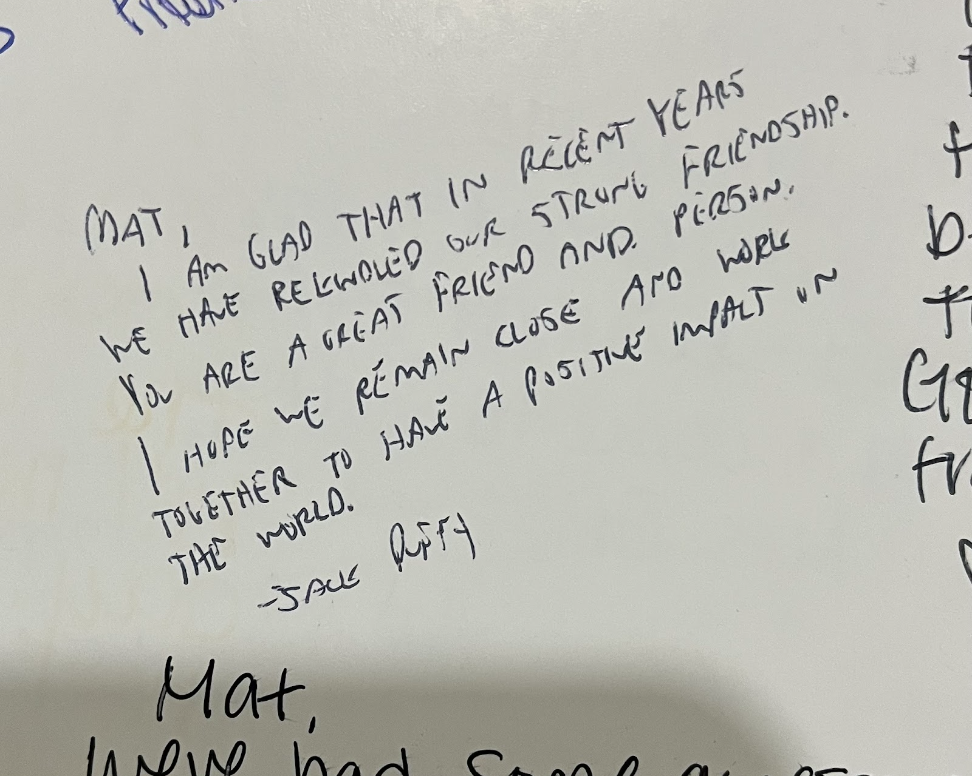 MAT,
I AM GLAD THAT IN RECENT YEARS
WE HAVE REKINDLED OUR STRONG FRIENDSHIP.
YOU ARE A GREAT FRIEND AND PERSON.
I HOPE WE REMAIN CLOSE AND WORK
TOGETHER TO HAVE A POSITIVE IMPACT ON
THE WORLD.
-JACK DUFFY
Mat,
We've had some